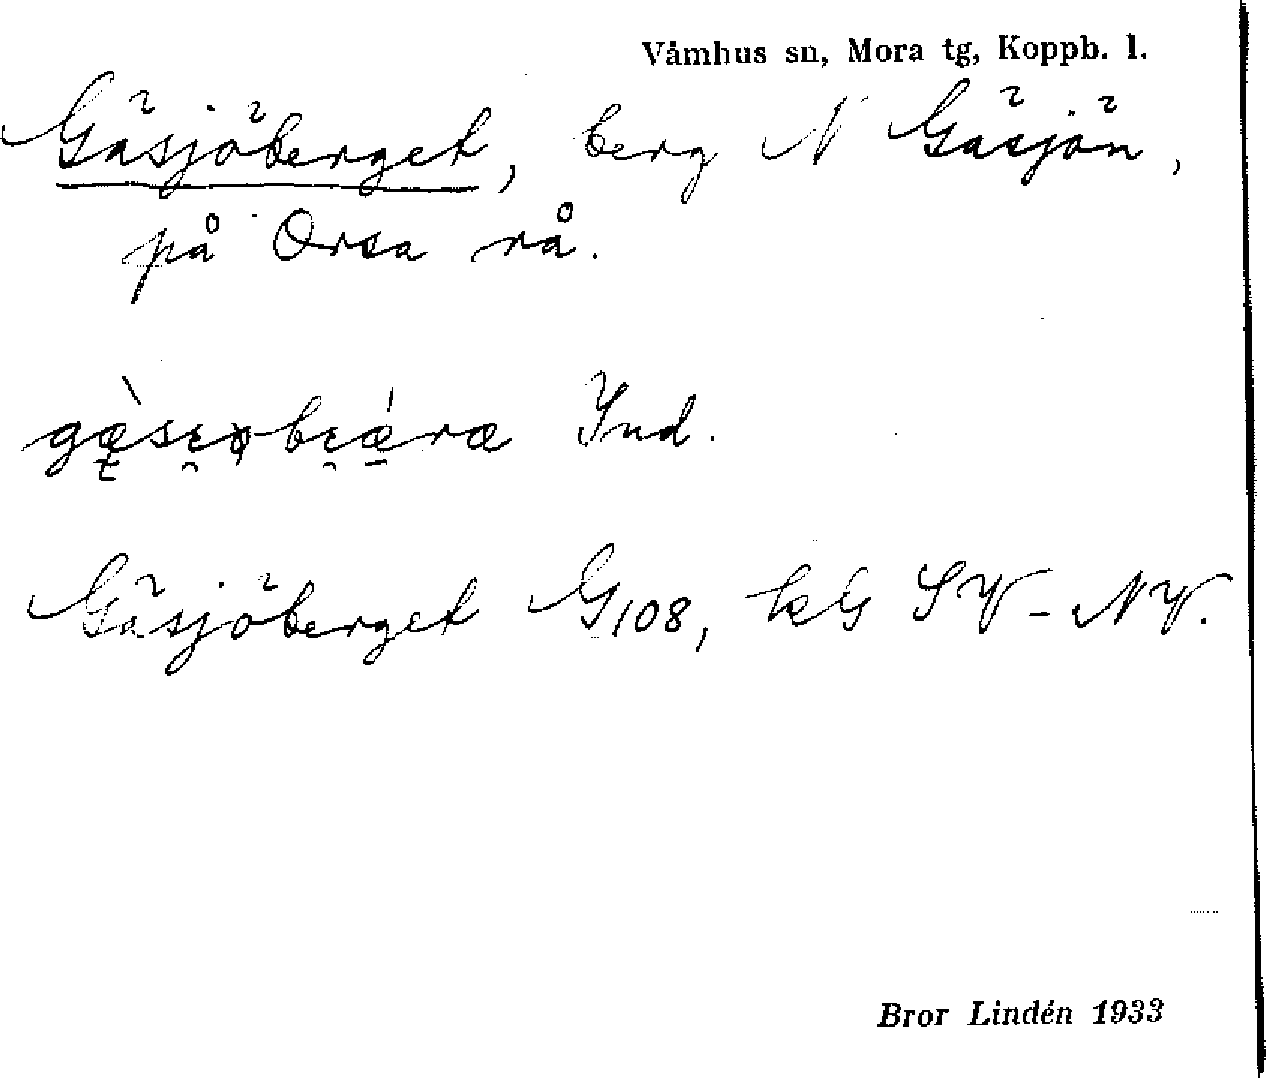 Våmhus sn, Mora tg, Koppb. l.
Gäsjöberget, berg N Gäsjön,
på Orsa rå.
Ind.
Gäsjöberget G108, kG SV-NV.
Bror Lindén 1933